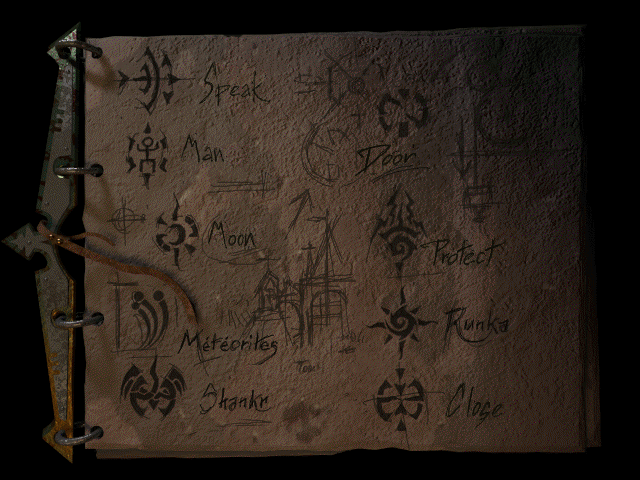 Speak
Man
Moon
Météorites
Shankr
Door
Protect
Runka
Close